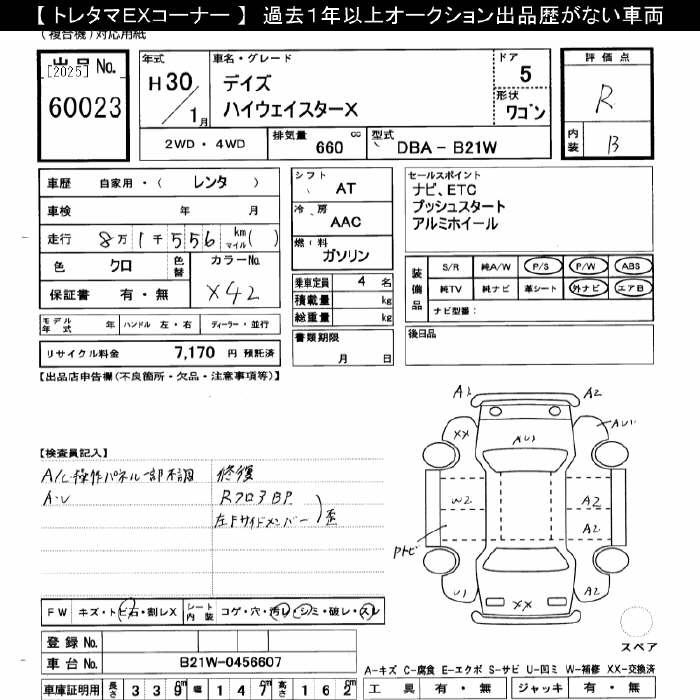 【 トレタマEXコーナー 】 過去１年以上オークション出品歴がない車両
(複合機)対応用紙
出品 No.
[2025]
60023
年式
H 30 / 1月
車名・グレード
デイズ
ハイウェイスターX
ドア
5
形状
ワゴン
評価点
R
内装
B
2WD ・ 4WD
排気量 660 cc
型式 DBA － B21W
車歴 自家用・( レンタ )
車検 年 月
走行 8万 1千 5 5 6 km マイル ( )
色 クロ
色替
カラーNo.
X42
保証書 有・無
シフト
AT
冷房
AAC
燃料
ガソリン
乗車定員 4 名
積載量 kg
総重量 kg
セールスポイント
ナビ、ETC
プッシュスタート
アルミホイール
装備品
S/R 純A/W P/S P/W ABS
純TV 純ナビ 革シート 外ナビ エアB
ナビ型番：
モデル年式 年 ハンドル 左・右 ディーラー・並行
リサイクル料金 7,170 円 預託済
書類期限
月 日
後日品
【出品店申告欄(不良箇所・欠品・注意事項等)】
【検査員記入】
A/C操作パネル一部不調
A・U
修復
Rフロア BP
左Fサイドメンバー 歪
A1
A2
XX
AU1
AU1
W2
A2
A2
Pトビ
U1
XX
A2
スペア
FW キズ・トビ石・割レX
シート内装 コゲ・穴・汚レ・シミ・破レ・スレ
登録 No.
車台 No. B21W-0456607
車庫証明用 長さ 3 3 9 cm 幅 1 4 7 cm 高さ 1 6 2 cm
A－キズ C－腐食 E－エクボ S－サビ U－凹ミ W－補修 XX－交換済
工具 有・無 ジャッキ 有・無